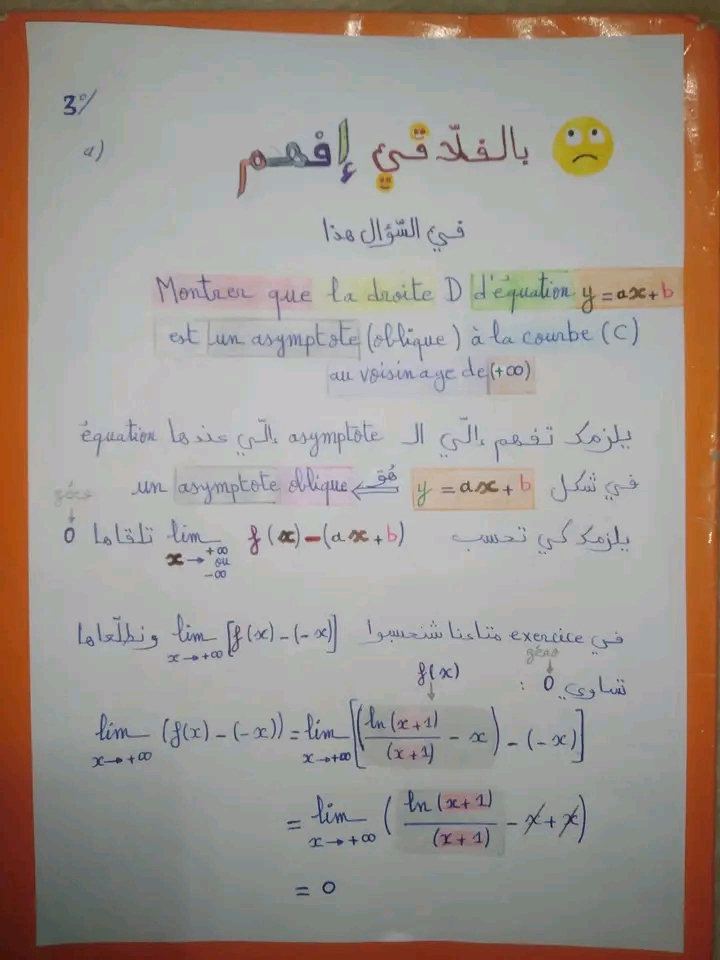 3°/
a)
بالفلاّقي إفهم
في السّؤال هذا
Montrer que la droite D d'équation y = ax + b
est un asymptote (oblique) à la courbe (C)
au voisinage de (+∞)
يلزمك تفهم إلّي الـ asymptôte إلّي عندها équation
في شكل y = ax + b هُوّ un asymptote oblique
يلزمك كي تحسب lim x→+∞ ou -∞ f(x) - (ax + b) تلقاها 0 zéro
في exercice متاعنا شنحسبوا lim x→+∞ [f(x) - (-x)] ونطلّعاها
تساوي 0 zéro :
f(x)
lim x→+∞ (f(x) - (-x)) = lim x→+∞ [(ln(x+1)/(x+1) - x) - (-x)]
= lim x→+∞ (ln(x+1)/(x+1) - x + x)
= 0